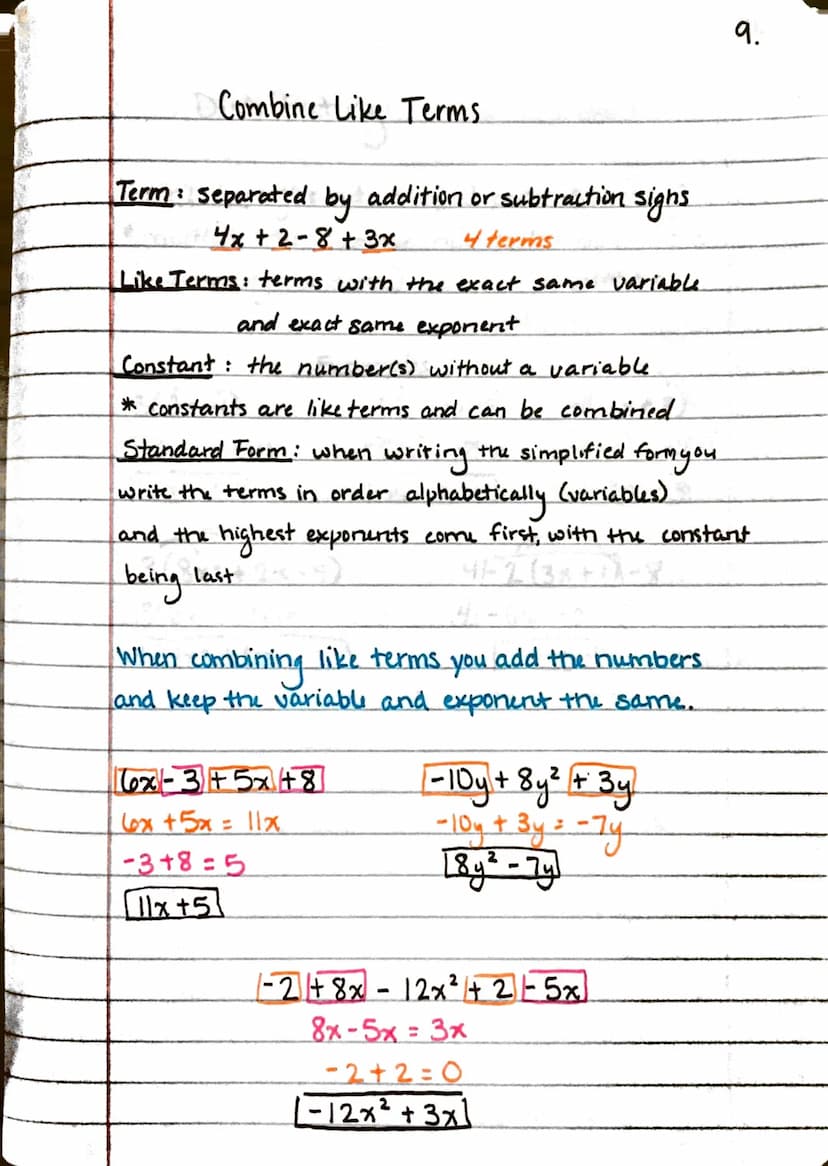 9.
Combine Like Terms
Term: separated by addition or subtraction signs
4x + 2 - 8 + 3x 4 terms
Like Terms: terms with the exact same variable
and exact same exponent
Constant: the number(s) without a variable
* constants are like terms and can be combined
Standard Form: when writing the simplified form you
write the terms in order alphabetically (variables)
and the highest exponents come first, with the constant
being last
When combining like terms you add the numbers
and keep the variable and exponent the same.
6x - 3 + 5x + 8 -10y + 8y² + 3y
6x + 5x = 11x -10y + 3y = -7y
-3 + 8 = 5 8y² - 7y
11x + 5
-2 + 8x - 12x² + 2 - 5x
8x - 5x = 3x
-2 + 2 = 0
-12x² + 3x